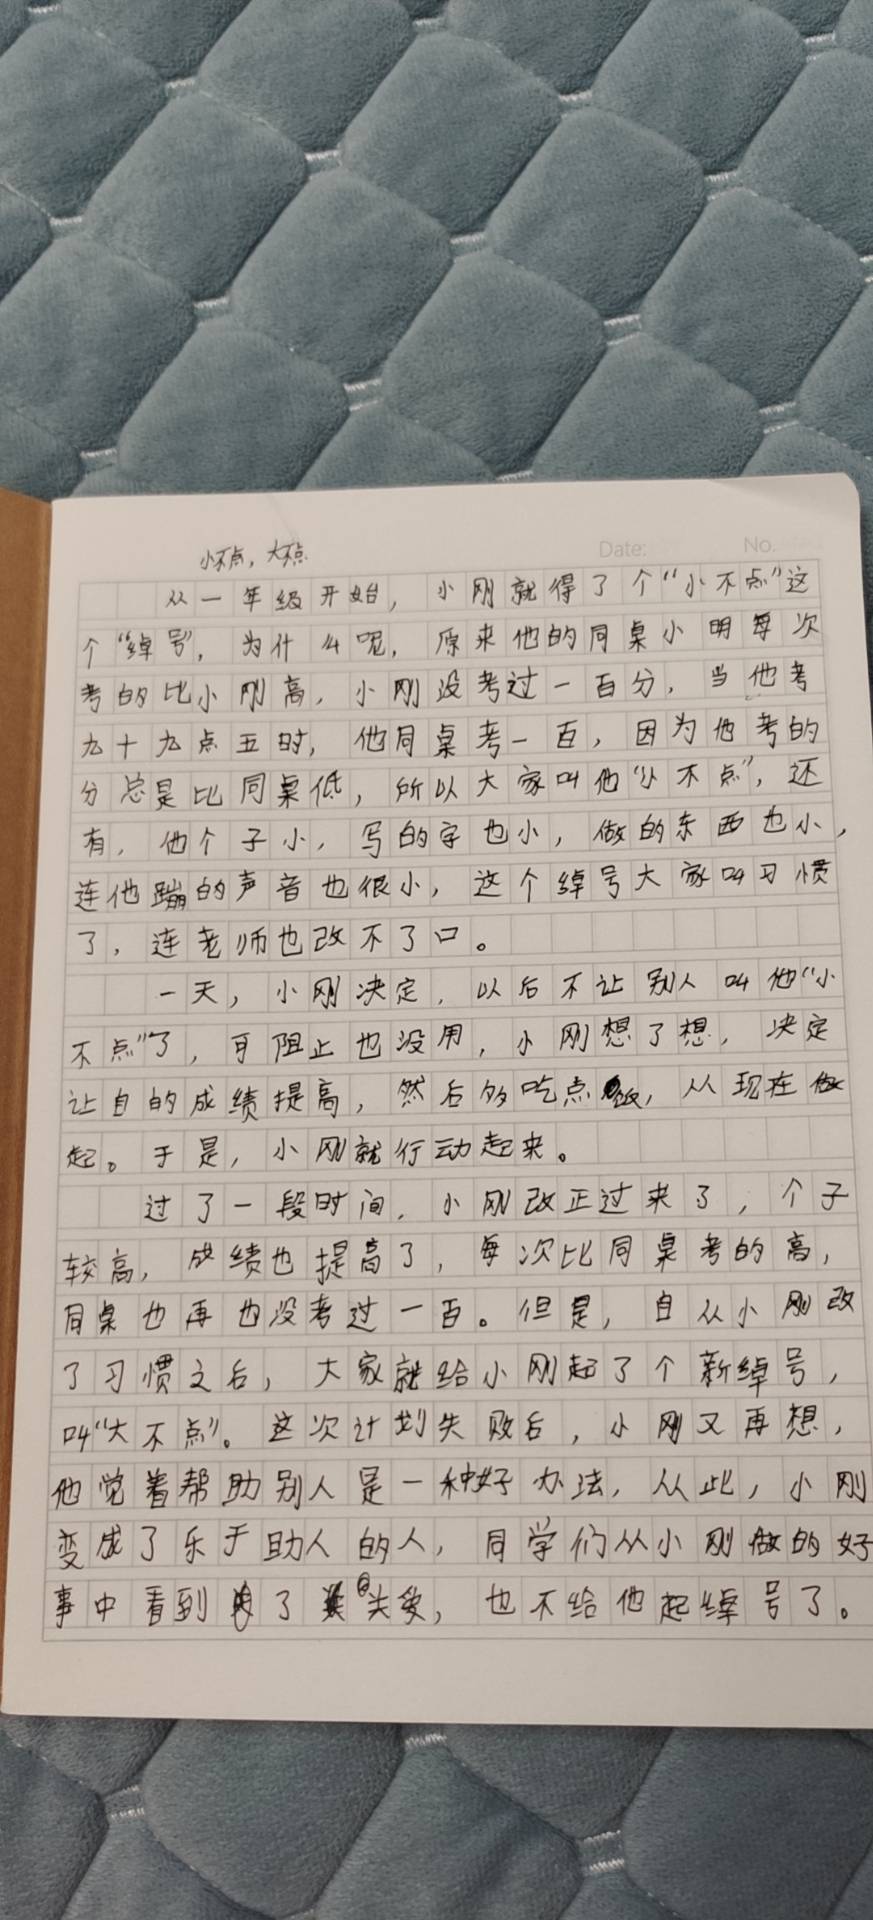 小不点，大不点
Date:
No.
从一年级开始，小刚就得了个“小不点”这
个“绰号”，为什么呢，原来他的同桌小明每次
考的比小刚高，小刚没考过一百分，当他考
九十九点五时，他同桌考一百，因为他考的
分总是比同桌低，所以大家叫他“小不点”，还
有，他个子小，写的字也小，做的东西也小，
连他蹦的声音也很小，这个绰号大家叫习惯
了，连老师也改不了口。
一天，小刚决定，以后不让别人叫他“小
不点”了，可阻止也没用，小刚想了想，决定
让自的成绩提高，然后多吃点饭，从现在做
起。于是，小刚就行动起来。
过了一段时间，小刚改正过来了，个子
较高，成绩也提高了，每次比同桌考的高，
同桌也再也没考过一百。但是，自从小刚改
了习惯之后，大家就给小刚起了个新绰号，
叫“大不点”。这次计划失败后，小刚又再想，
他觉着帮助别人是一种好办法，从此，小刚
变成了乐于助人的人，同学们从小刚做的好
事中看到了关爱，也不给他起绰号了。